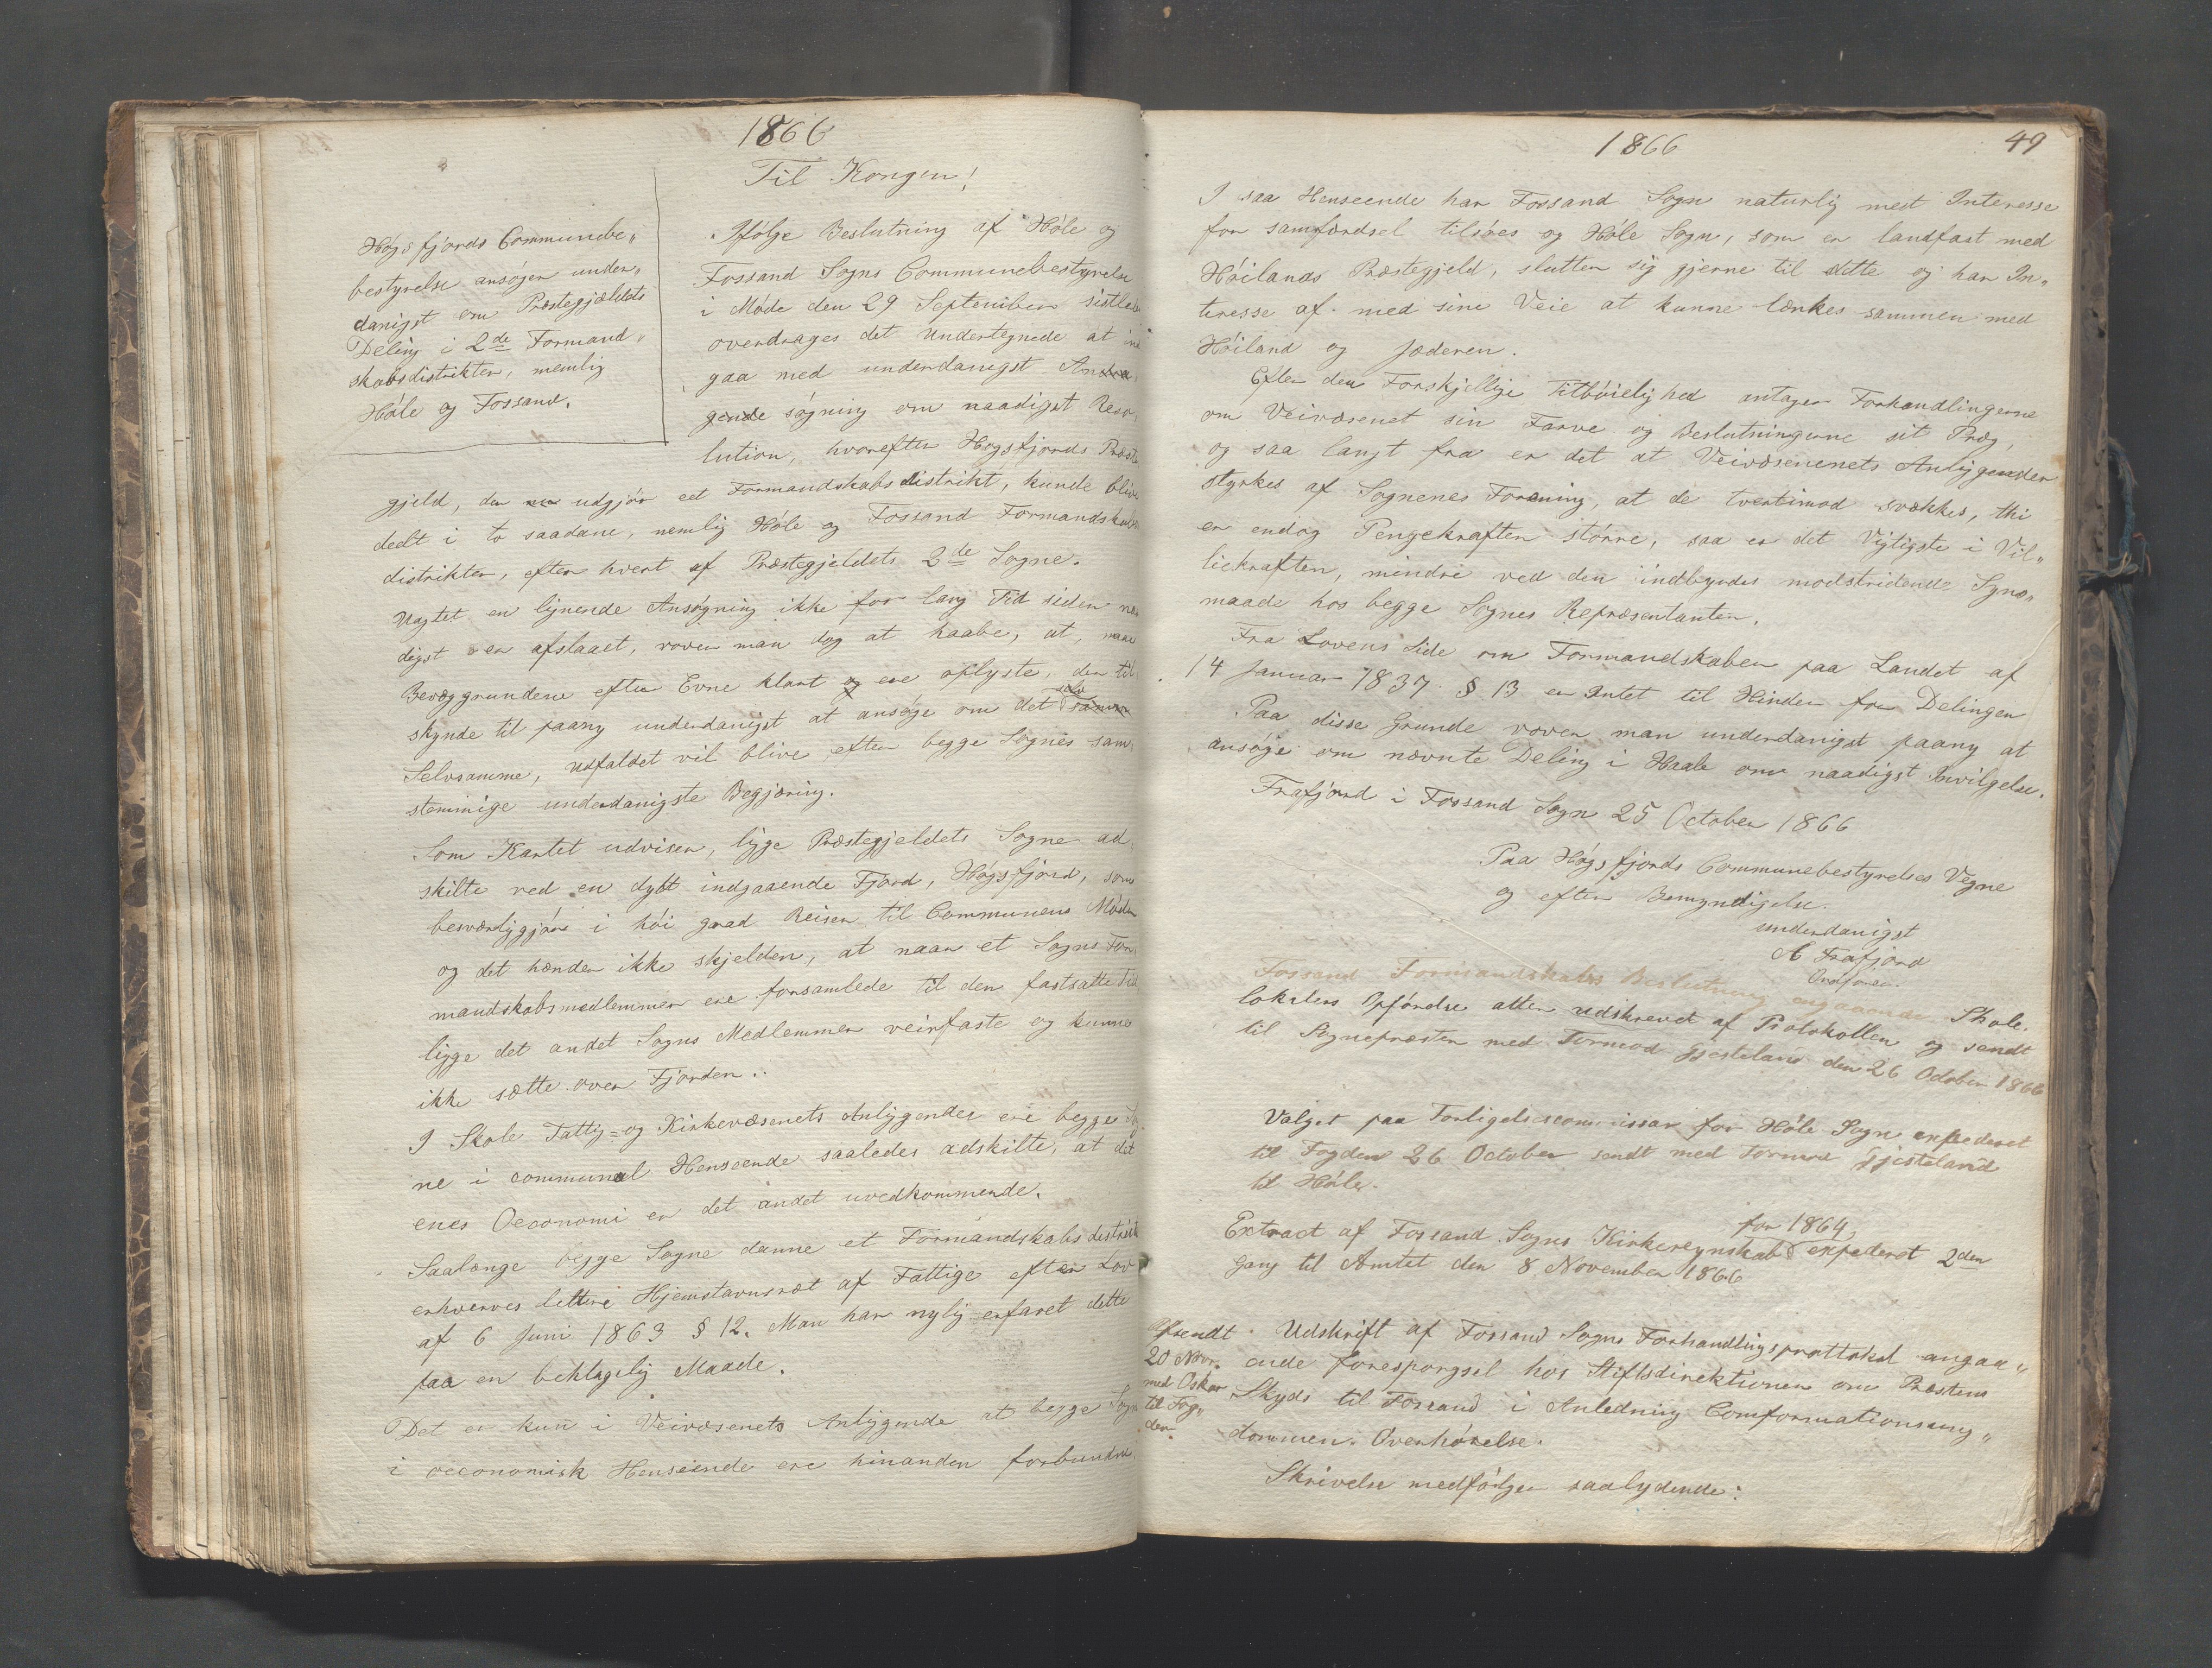 1866
Til Kongen!
Høgsfjords Communebe„
bestyrelse ansøger under„
danigst om Præstegjældets
Deling i 2de Formand„
skabsdistrikter, nemlig
Høle og Fossand.
Ifølge Beslutning af Høle og
Fossand Sogns Communebestyrelse
i Møde den 29 September sistled
overdrages det Undertegnede at ind
gaa med underdanigst Andra
gende søgning om naadigst Reso
lution, hvorefter Høgsfjords Præste
gjeld, der nu udgjør eet Formandskabsdistrikt, kunde blive
deelt i to saadane, nemlig Høle og Fossand Formandskabs
distrikter, efter hvert af Præstegjeldets 2de Sogne.
Uagtet en lignende Ansøgning ikke for lang Tid siden naa
digst er afslaaet, vover man dog at haabe, at, naar
Bevæggrundene efter Evne klart og ere oplyste, der til
skynde til paany underdanigst at ansøge om det selv samme
Selvsamme, Udfaldet vil blive efter begge Sognes sam
stemmige underdanigste Begjæring.
Som Kartet udviser, ligge Præstegjeldets Sogne ad
skilte ved en dybt indgaaende Fjord, Høgsfjord, som
besværliggjøre i høi grad Reiser til Communens Møder
og det hænder ikke skjelden, at naar et Sogns For
mandskabsmedlemmer ere forsamlede til den fastsatte Tid
ligge det andet Sogns Medlemmer veirfaste og kunne
ikke sætte over Fjorden.
I Skole Fattig- og Kirkevæsenets Anliggender ere begge Sog
ne i communal Henseende saaledes adskilte, at det
enes Oeconomi er det andet uvedkommende.
Saalænge begge Sogne danne et Formandskabsdistrikt
erhverves lettere Hjemstavnsret af Fattige efter Lov
af 6 Juni 1863 § 12. Man har nylig erfaret dette
paa en beklagelig Maade.
Det er kun i Veivæsenets Anliggende at begge Sogne
i oeconomisk Henseende ere hinanden forbundne.
1866
49
I saa Henseende har Fossand Sogn naturlig mest Interesse
for samfærdsel tilsøes og Høle Sogn, som er landfast med
Høilands Præstegjeld, slutter sig gjerne til dette og har In„
teresse af med sine Veie at kunne lænkes sammen med
Høiland og Jæderen.
Efter den Forskjellige Tilbøielighed antager Forhandlingerne
om Veivæsenet sin Farve og Beslutningerne sit Præg,
og saa langt fra er det at Veivæsenenets Anliggender
styrkes af Sognenes Forening, at de tvertimod svækkes, thi
er endog Pengekraften større, saa er det Vigtigste i Vil„
liekraften, mindre ved den indbyrdes modstridende Syns„
maade hos begge Sognes Repræsentanter.
Fra Lovens Side om Formandskaber paa Landet af
14 Januar 1837 § 13 er Intet til Hinder for Delingen
Paa disse Grunde vover man underdanigst paany at
ansøge om nævnte Deling i Haab om naadigst Invilgelse.
Frafjord i Fossand Sogn 25 October 1866
Paa Høgsfjords Communebestyrelses Vegne
og efter Bemyndigelse.
underdanigst
A Frafjord
Ordfører.
Fossand Formandskabs Beslutning angaaende Skole.
lokalers Opførelse atter udskrevet af Protokollen og sendt
til Sognepræsten med Tormod Gjesteland den 26 October 1866
Valget paa Forligelsescommissær for Høle Sogn expederet
til Fogden 26 October sendt med Tormod Gjesteland
til Høle.
for 1864,
Extract af Fossand Sogns Kirkeregnskab expederet 2den
Gang til Amtet den 8 November 1866
Afsendt
20 Nov.
med Oskar
til Fog„
den.
Udskrift af Fossand Sogns Forhandlingsprottokol angaa„
ende forespørgsel hos Stiftsdirektionen om Præstens
Skyds til Fossand i Anledning Comformationsung„
dommen. Overhørelse.
Skrivelse medfølger saalydende: